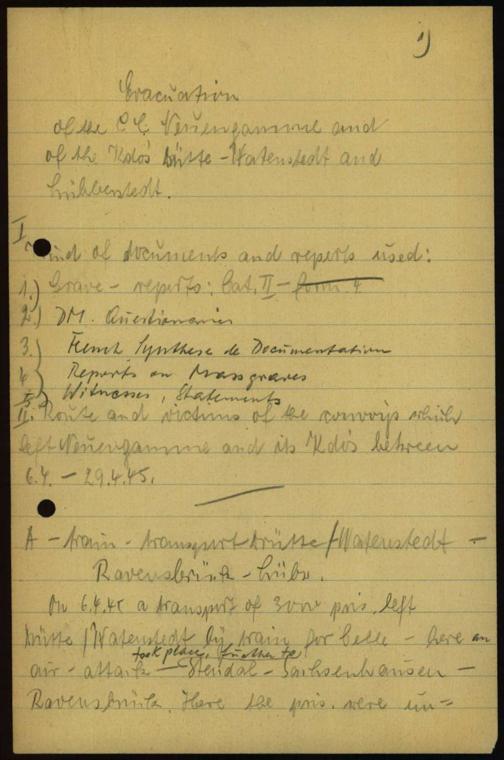 1)
Evacuation
of the C C Neuengamme and
of the Kdo's Drütte - Watenstedt and
Lübberstedt.
I
Kind of documents and reports used:
1.) Grave - reports: Cat. II - form. 4
2.) DM. Questionaries
3. French Synthese de Documentation
4. Reports on Massgraves
5. Witnesses, Statements
II. Route and victims of the convoys which
left Neuengamme and its Kdo's between
6.4. - 29.4.45.
A - train - transport Drütte/Watenstedt -
Ravensbrück - Lübz.
On 6.4.45 a transport of 3000 pris. left
Drütte/Watenstedt by train for Celle - here an
took place, further to:
air - attack - Stendal - Sachsenhausen -
Ravensbrück. Here the pris. were un=